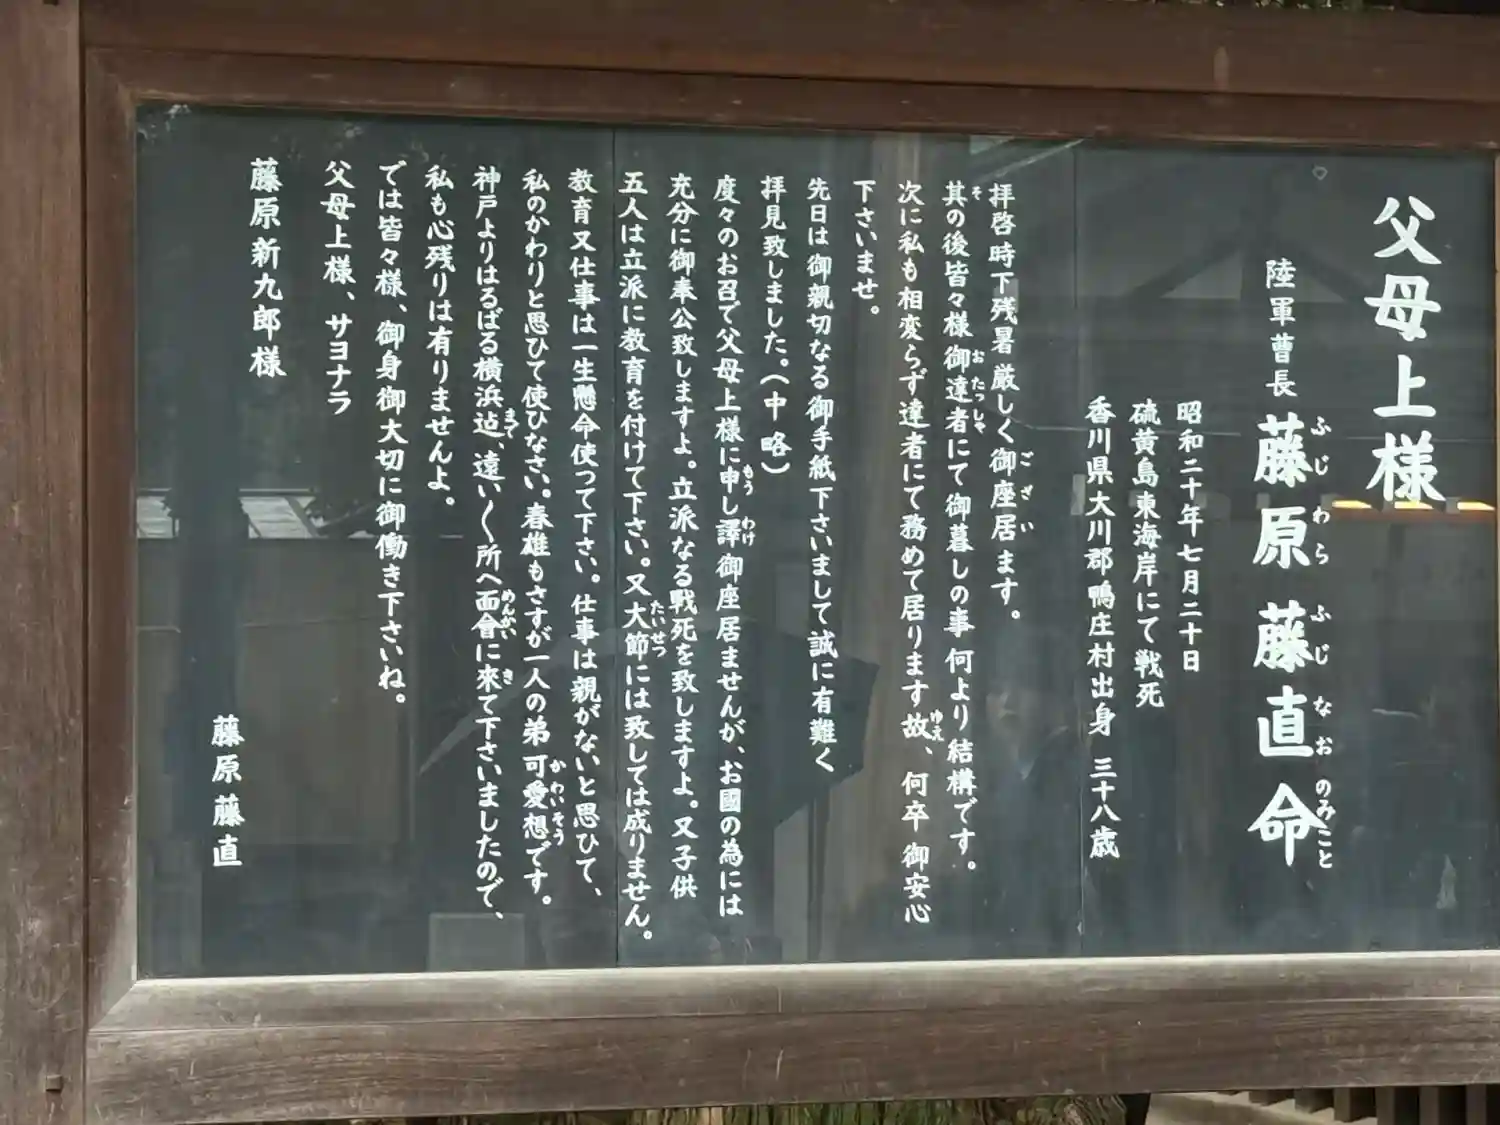 父母上様
陸軍曹長 藤原藤直命
ふじ わら ふじ なおのみこと
昭和二十年七月二十日
硫黄島東海岸にて戦死
香川県大川郡鴨庄村出身 三十八歳
拝啓時下残暑厳しく御座居ます。
ござい
其の後皆々様御達者にて御暮しの事何より結構です。
そ おたっしゃ
次に私も相変らず達者にて務めて居ります故、何卒御安心
ゆえ
下さいませ。
先日は御親切なる御手紙下さいまして誠に有難く
拝見致しました。(中略)
度々のお召で父母上様に申し譯御座居ませんが、お國の為には
もう わけ
充分に御奉公致しますよ。立派なる戦死を致しますよ。又子供
五人は立派に教育を付けて下さい。又大節には致しては成りません。
たいせつ
教育又仕事は一生懸命使つて下さい。仕事は親がないと思ひて、
私のかわりと思ひて使ひなさい。春雄もさすが一人の弟可愛想です。
かわいそう
神戸よりはるばる横浜迠、遠い〱所へ面會に來て下さいましたので、
まで めんかい き
私も心残りは有りませんよ。
では皆々様、御身御大切に御働き下さいね。
父母上様、サヨナラ
藤原新九郎様
藤原藤直